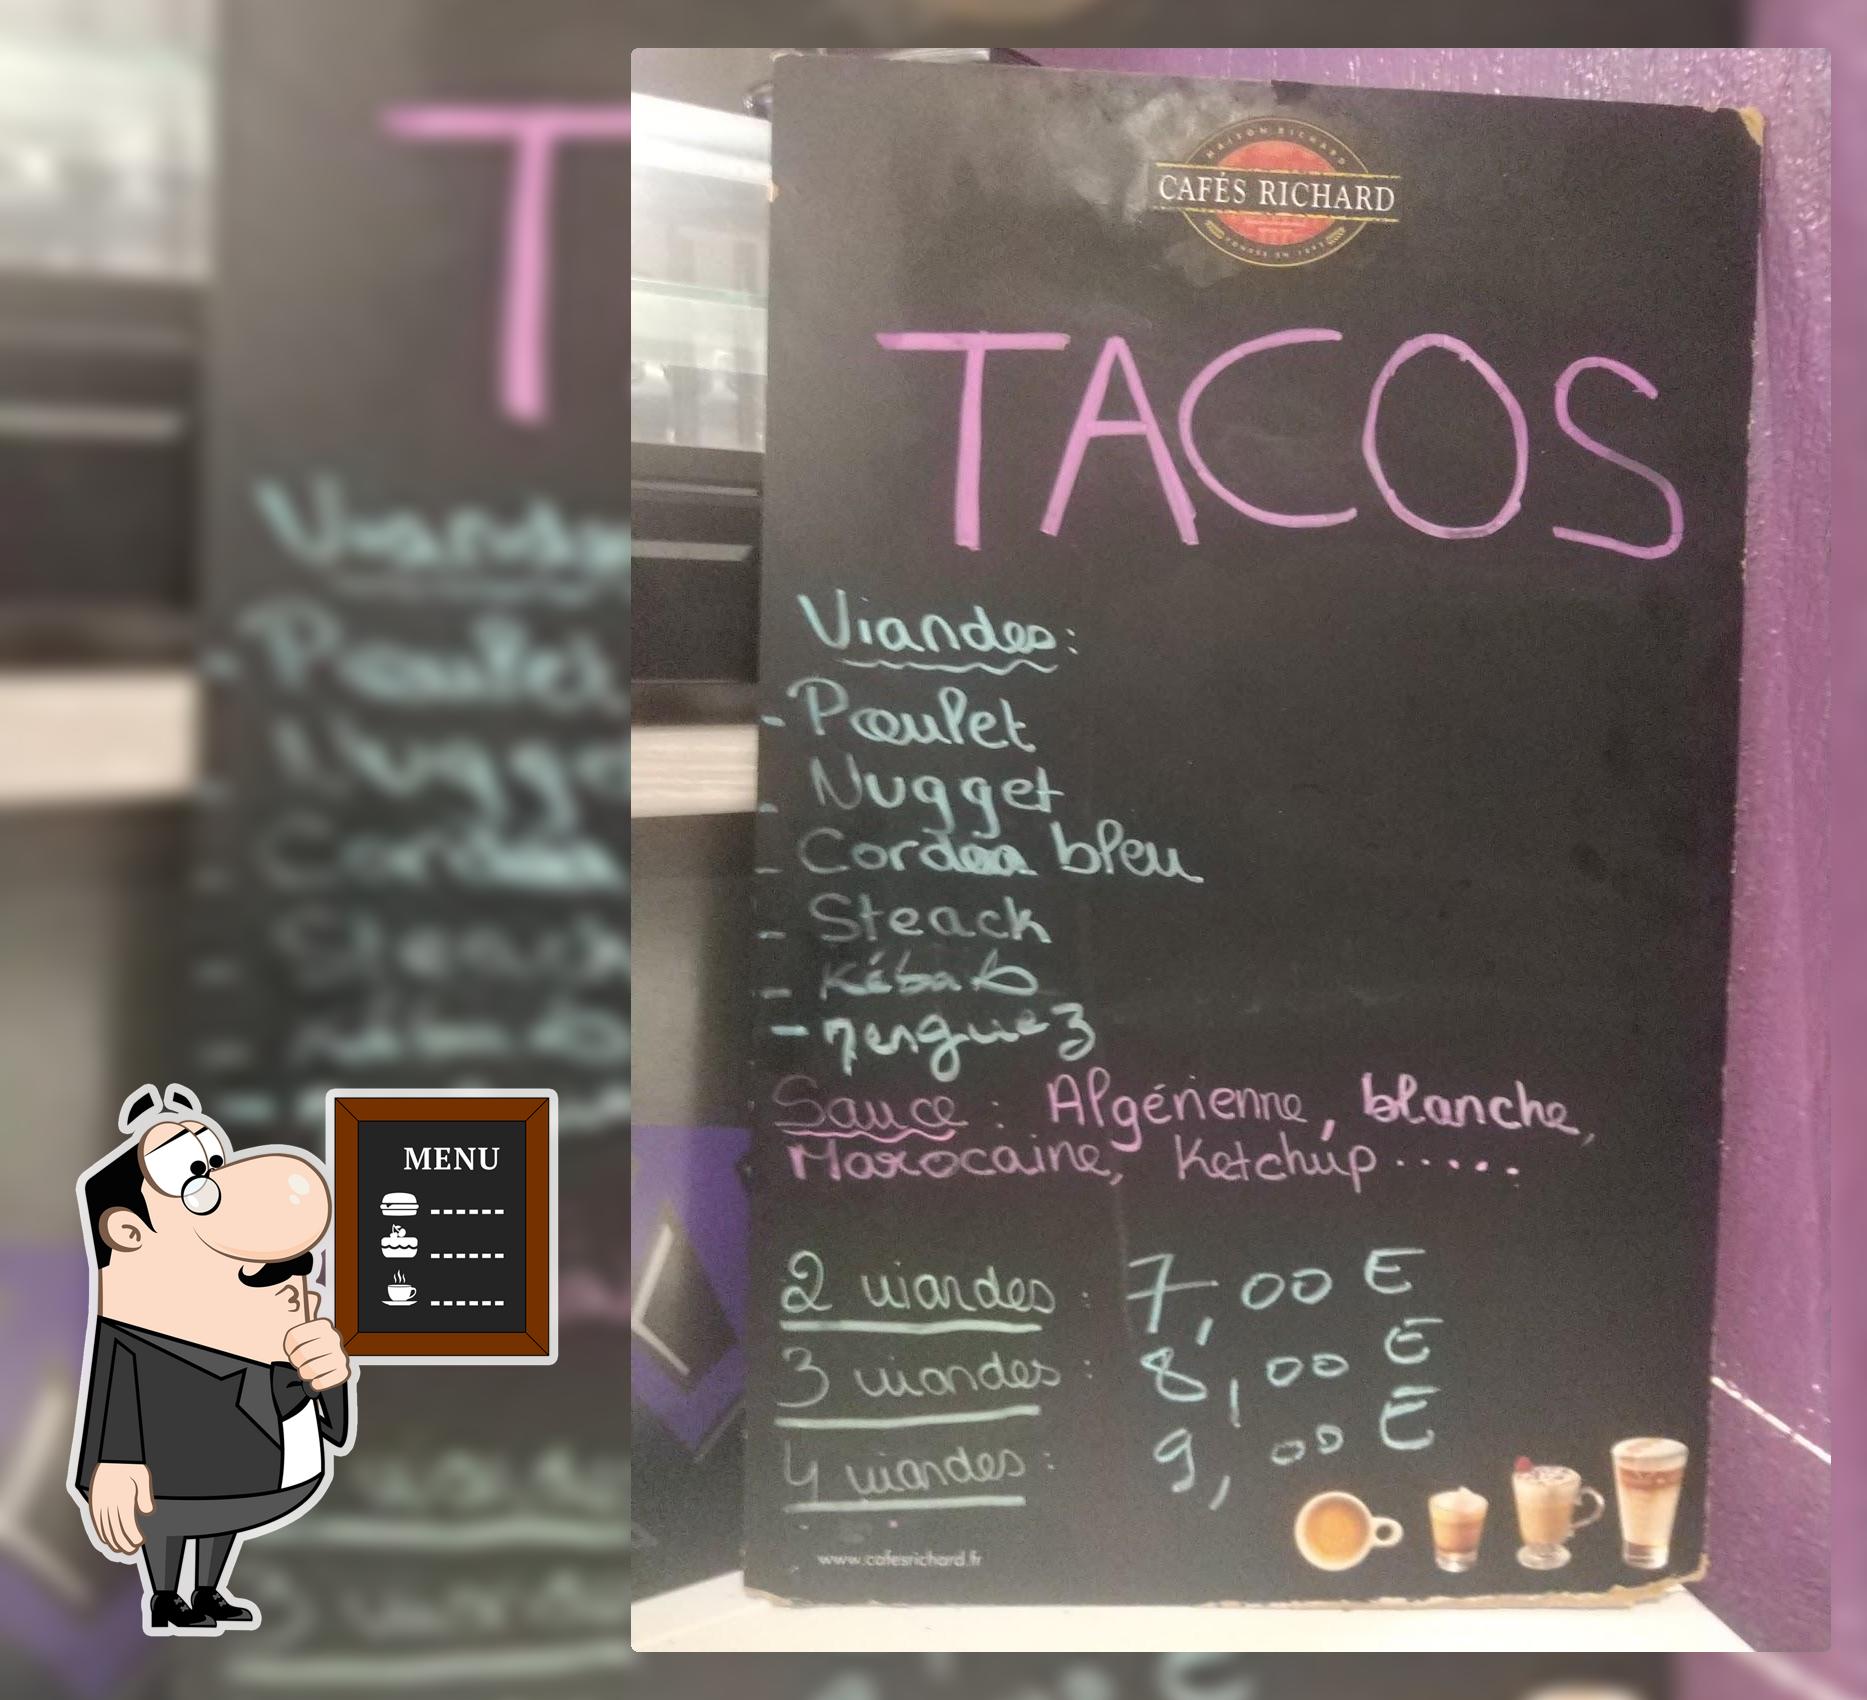 MAISON RICHARD
CAFÉS RICHARD
TACOS
Viandes:
- Poulet
- Nugget
- Cordon bleu
- Steack
- Kébab
- merguez
Sauce : Algérienne, blanche,
Marocaine, Ketchup......
2 viandes : 7,00 €
3 viandes : 8,00 €
4 viandes : 9,00 €
www.cafesrichard.fr
MENU